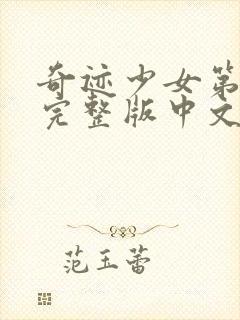 奇迹少女第
完整版中文
范玉蕾